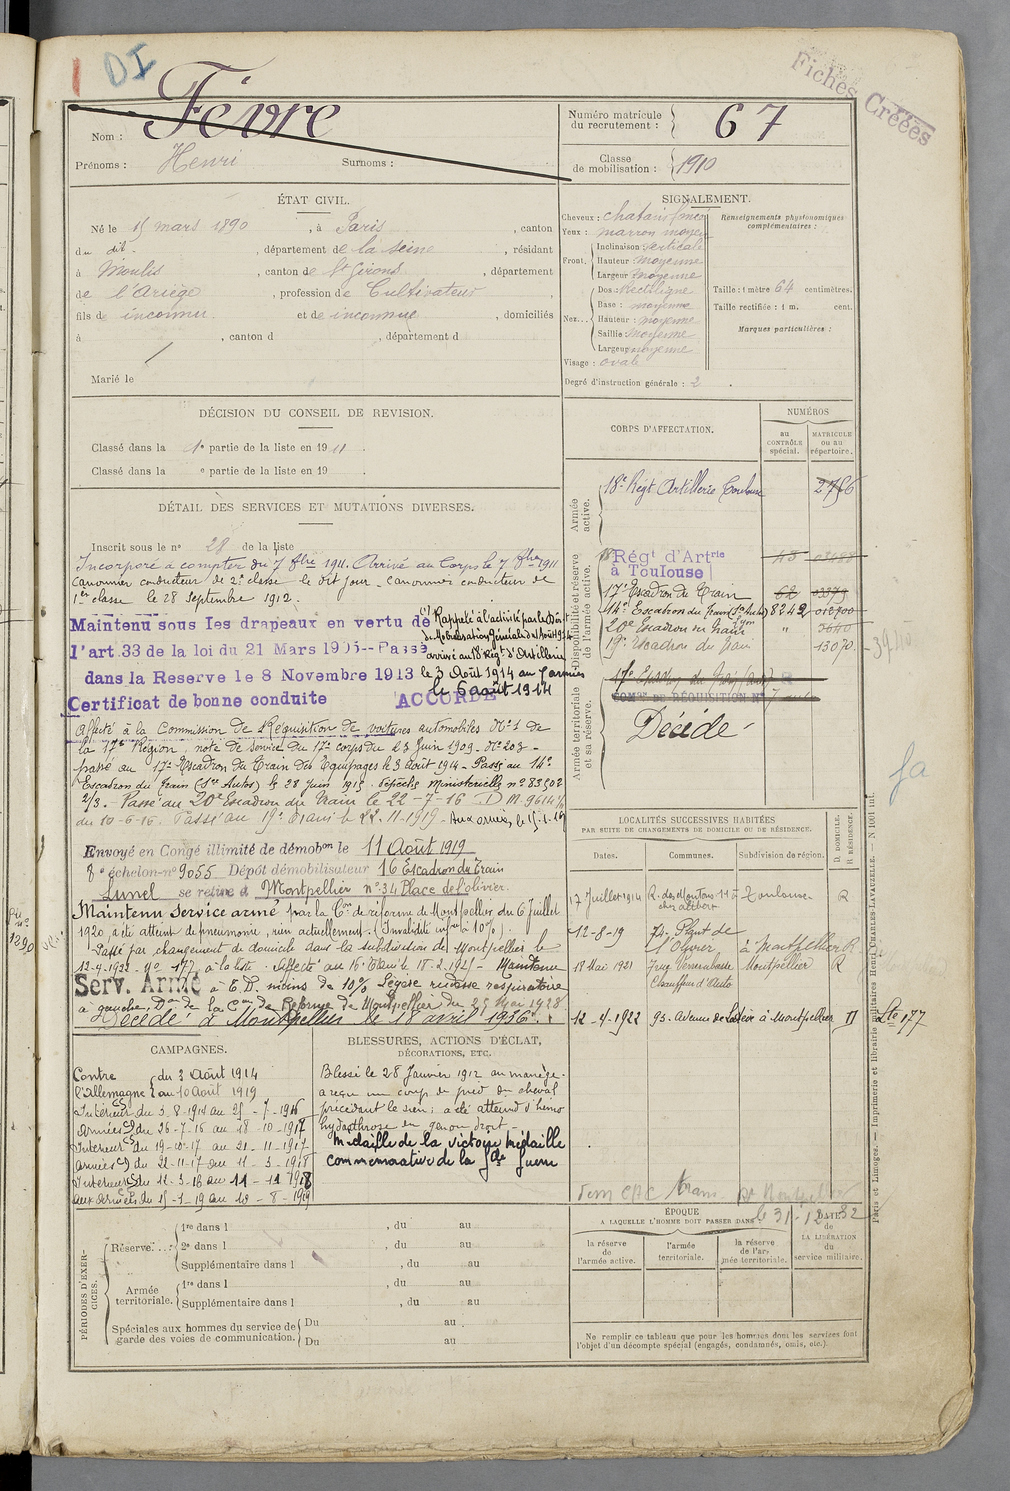 DI
Fiches Créées
Nom : Févre
Prénoms : Henri Surnoms :
Numéro matricule du recrutement : 67
Classe de mobilisation : 1910
ÉTAT CIVIL.
Né le 15 mars 1890, à Paris, canton
du dit, département de la Seine, résidant
à Moulis, canton de St Girons, département
de l'Ariège, profession de Cultivateur,
fils de inconnu et de inconnue, domiciliés
à , canton d , département d
Marié le
SIGNALEMENT.
Cheveux : chatains foncé
Yeux : marron moyen
Front. Inclinaison : verticale
Hauteur : moyenne
Largeur : moyenne
Nez... Dos : Rectiligne
Base : moyenne
Hauteur : moyenne
Saillie : moyenne
Largeur : moyenne
Visage : ovale
Renseignements physionomiques complémentaires :
Taille : 1 mètre 64 centimètres.
Taille rectifiée : 1 m. cent.
Marques particulières :
Degré d'instruction générale : 2.
DÉCISION DU CONSEIL DE REVISION.
Classé dans la 1e partie de la liste en 1911.
Classé dans la e partie de la liste en 19 .
DÉTAIL DES SERVICES ET MUTATIONS DIVERSES.
Inscrit sous le no 28 de la liste
Incorporé à compter du 7 8bre 1911. Arrivé au Corps le 7 8bre 1911
canonnier conducteur de 2e classe le dit jour. Canonnier conducteur de
1ère classe le 28 Septembre 1912.
Maintenu sous les drapeaux en vertu de
l'art. 33 de la loi du 21 Mars 1905--Passé
dans la Reserve le 8 Novembre 1913
Certificat de bonne conduite ACCORDÉ
Rappelé à l'activité par le Décret
de Mobilisation Générale du 1 Août 1914
arrivé au 18e Régt d'Artillerie
le 3 Août 1914 aux armées
le 6 août 1914
Affecté à la Commission de Réquisition de voitures automobiles No 1 de
la 17e Région, note de Service du 17e corps du 23 Juin 1909 - No 203 -
passé au 17e Escadron du Train des Equipages le 3 août 1914 - Passé au 14e
Escadron du Train (Sce Autos) le 28 Juin 1915. Dépêche Ministérielle no 83502
2/3. - Passé au 20e Escadron du Train le 22-7-16 D.M. 9614
du 10-6-16. Passé au 19e Train le 22-11-1919 - Aux armées, le 15-1-19
Envoyé en Congé illimité de démobon le 11 Août 1919
8e échelon - no 9055 Dépôt démobilisateur 16 Escadron du Train
Lunel se retire à Montpellier no 34 Place de l'olivier.
Maintenu service armé par la Con de réforme de Montpellier du 6 Juillet
1920, a été atteint de pneumonie, rien actuellement. (Invalidité infre à 10%).
Passé par changement de domicile dans la subdivision de Montpellier le
12-4-1922 - No 177 à la liste. Affecté au 16e Train le 18-2-1925 - Maintenu
Serv. Armé à E.D. moins de 10% Légère rudesse respiratoire
à gauche, Don de la Con de Réforme de Montpellier du 25 Mai 1928
Décédé à Montpellier le 18 avril 1936.
CORPS D'AFFECTATION.
NUMÉROS
au CONTRÔLE spécial.
MATRICULE ou au répertoire.
Armée active.
18e Régt Artillerie Toulouse 2756
Disponibilité et réserve de l'armée active.
18 Régt d'Artrie à Toulouse
17e Escadron du Train 62 03379
14e Escadron du Train (Sce Autos) 8242
20e Escadron du Train "
19e Escadron du Train 13070
Armée territoriale et sa réserve.
COMon DE RÉQUISITION No
Décédé
fa
LOCALITÉS SUCCESSIVES HABITÉES
PAR SUITE DE CHANGEMENTS DE DOMICILE OU DE RÉSIDENCE.
Dates. Communes. Subdivision de région. D. DOMICILE. R. RÉSIDENCE.
13 Juillet 1914 R. des Moutons 11 à Toulouse R
chez Albert
12-8-19 34- Place de l'Olivier à Montpellier R
18 Mai 1921 Montpellier R
Chauffeur d'Auto
12-4-1922 95- Avenue de Lodève à Montpellier D Lte 177
CAMPAGNES.
Contre l'Allemagne du 3 Août 1914
au 10 août 1919
Intérieur du 3-8-1914 au 25-7-1916
Armées du 26-7-16 au 18-10-1917
Intérieur du 19-10-17 au 21-11-1917
Armées du 22-11-17 au 11-3-1918
Intérieur du 12-3-18 au 14-11-1918
aux armées du 15-1-19 au 10-8-1919
BLESSURES, ACTIONS D'ÉCLAT, DÉCORATIONS, ETC.
Blessé le 28 Janvier 1912 au manège.
a reçu un coup de pied du cheval
précédant le sien ; a été atteint d'hémo
hydarthrose du genou droit -
Médaille de la victoire Médaille
commémorative de la Gde Guerre
PÉRIODES D'EXERCICES.
Réserve... : 1re dans l , du au
2e dans l , du au
Supplémentaire dans l , du au
Armée territoriale. 1re dans l , du au
Supplémentaire dans l , du au
Spéciales aux hommes du service de garde des voies de communication. Du au
Du au
ÉPOQUE
A LAQUELLE L'HOMME DOIT PASSER DANS
la réserve de l'armée active.
l'armée territoriale.
la réserve de l'armée territoriale.
DATE de LA LIBÉRATION du service militaire.
Ne remplir ce tableau que pour les hommes dont les services font
l'objet d'un décompte spécial (engagés, condamnés, omis, etc.)
Paris et Limoges. — Imprimerie et librairie militaires Henri CHARLES-LAVAUZELLE. — N 1001 int.